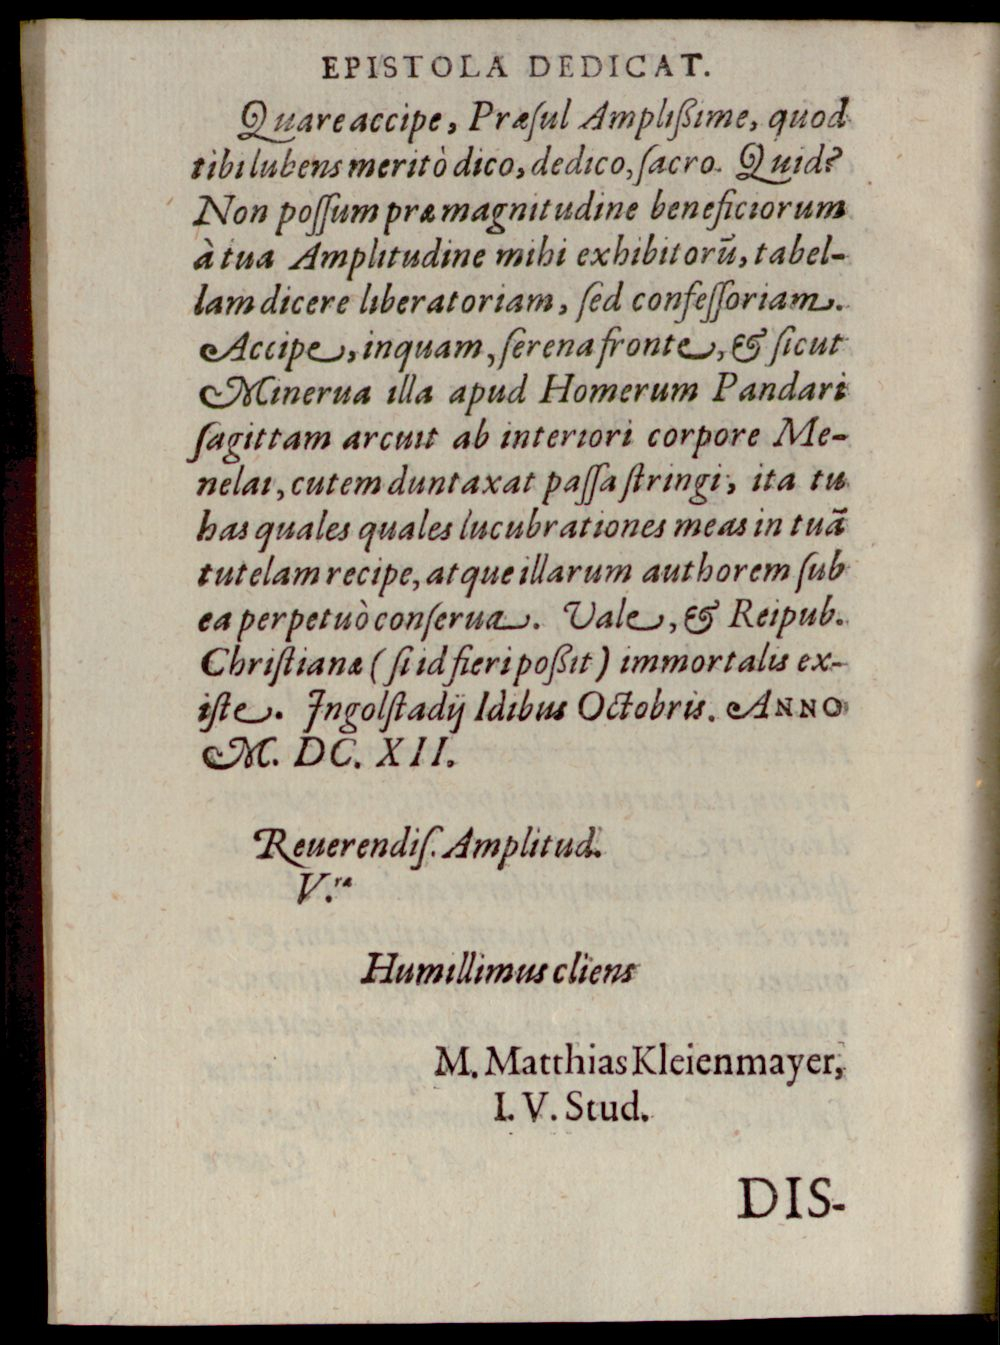 EPISTOLA DEDICAT.
Quare accipe, Præſul Amplißime, quod
tibi lubens meritò dico, dedico, ſacro. Quid?
Non poſſum præ magnitudine beneficiorum
à tua Amplitudine mihi exhibitorũ, tabel-
lam dicere liberatoriam, ſed confeſſoriam.
Accipe, inquam, ſerena fronte, & ſicut
Minerua illa apud Homerum Pandari
ſagittam arcuit ab interiori corpore Me-
nelai, cutem duntaxat paſſa ſtringi, ita tu
has quales quales lucubrationes meas in tuã
tutelam recipe, atque illarum authorem ſub
ea perpetuò conſerua. Vale, & Reipub.
Chriſtianæ (ſi id fieri poßit) immortalis ex-
iſte. Ingolſtadij Idibus Octobris. ANNO
M. DC. XII.
Reuerendiſ. Amplitud.
V.ræ
Humillimus cliens
M. Matthias Kleienmayer,
I. V. Stud.
DIS-